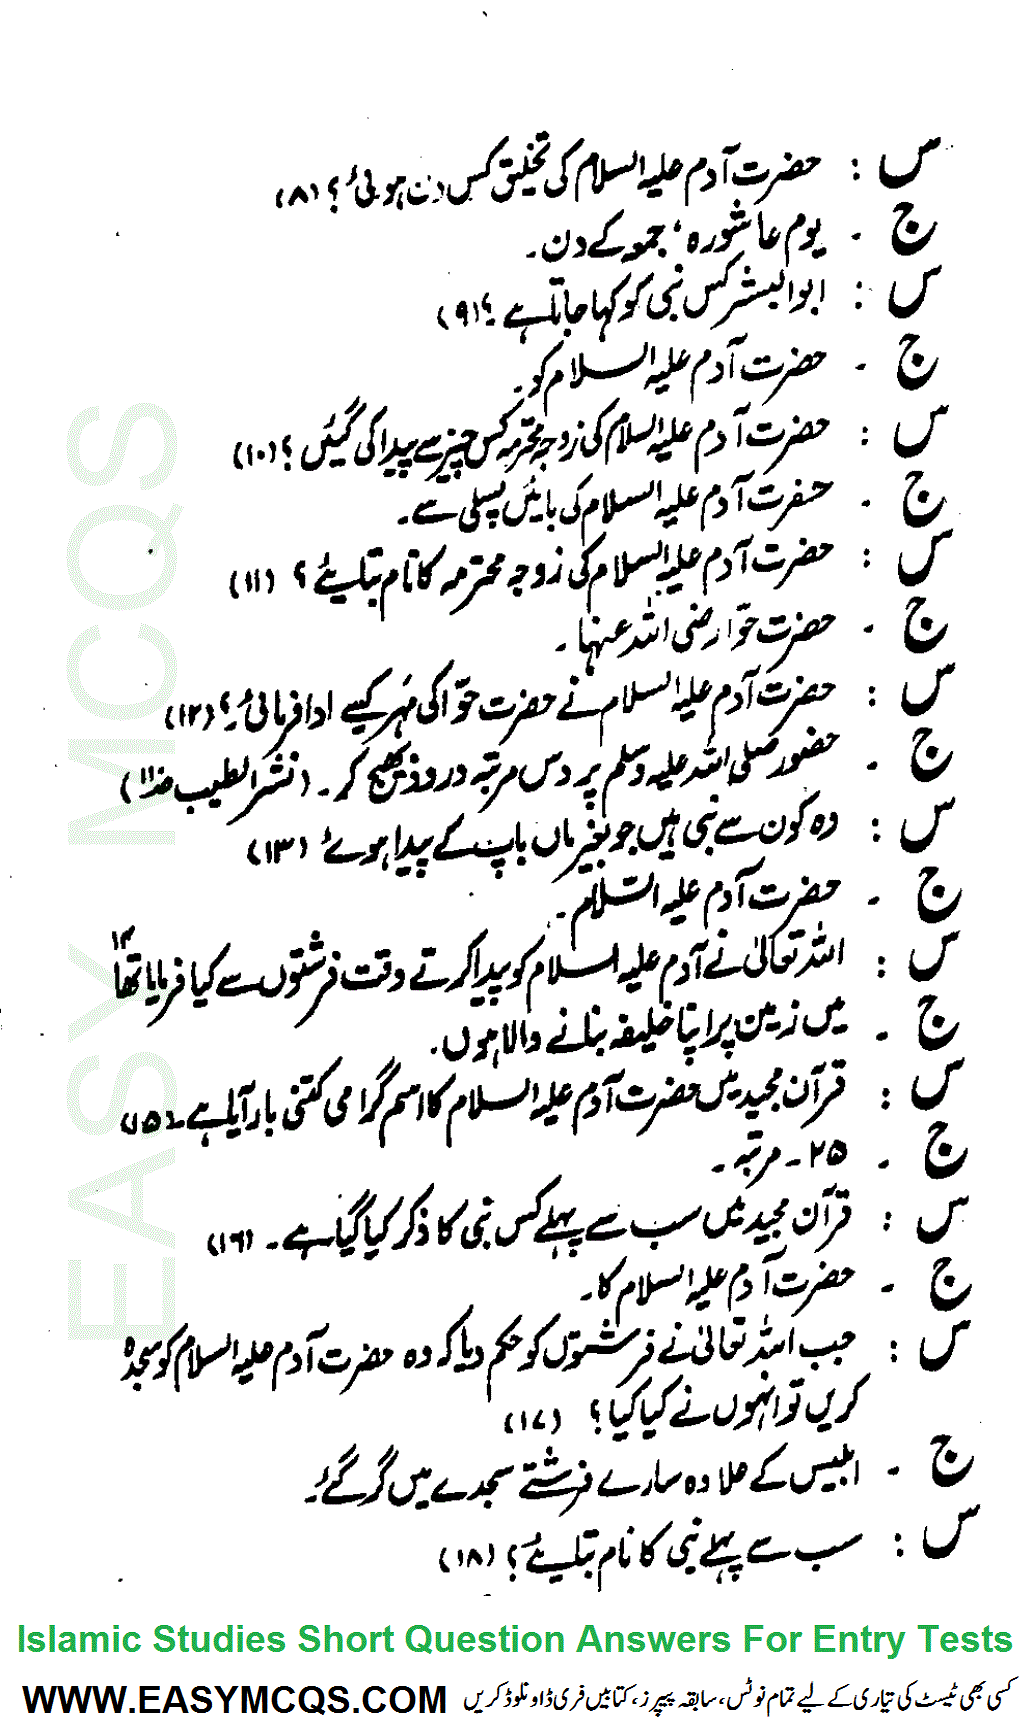 س : حضرت آدم علیہ السلام کی تخلیق کس دن ہوئی؟ (۸)
ج ۔ یوم عاشورہ، جمعہ کے دن۔
س : ابوالبشر کس نبی کو کہا جاتا ہے؟ (۹)
ج ۔ حضرت آدم علیہ السلام کو۔
س : حضرت آدم علیہ السلام کی زوجہ محترمہ کس چیز سے پیدا کی گئیں؟ (۱۰)
ج ۔ حضرت آدم علیہ السلام کی بائیں پسلی سے۔
س : حضرت آدم علیہ السلام کی زوجہ محترمہ کا نام بتایئے؟ (۱۱)
ج ۔ حضرت حوّا رضی اللہ عنہا۔
س : حضرت آدم علیہ السلام نے حضرت حوّا کی مُہر کیسے ادا فرمائی؟ (۱۲)
ج ۔ حضور صلی اللہ علیہ وسلم پر دس مرتبہ درود بھیج کر۔ (نشر الطیب صـ۱۱)
س : وہ کون سے نبی ہیں جو بغیر ماں باپ کے پیدا ہوئے (۱۳)
ج ۔ حضرت آدم علیہ السّلام۔
س : اللہ تعالیٰ نے آدم علیہ السلام کو پیدا کرتے وقت فرشتوں سے کیا فرمایا تھا ۱۴
ج ۔ میں زمین پر اپنا خلیفہ بنانے والا ہوں۔
س : قرآن مجید میں حضرت آدم علیہ السلام کا اسم گرامی کتنی بار آیا ہے۔ (۱۵)
ج ۔ ۲۵۔ مرتبہ۔
س : قرآن مجید میں سب سے پہلے کس نبی کا ذکر کیا گیا ہے۔ (۱۶)
ج ۔ حضرت آدم علیہ السلام کا۔
س : جب اللہ تعالیٰ نے فرشتوں کو حکم دیا کہ وہ حضرت آدم علیہ السلام کو سجدہ
کریں تو انہوں نے کیا کیا؟ (۱۷)
ج ۔ ابلیس کے علاوہ سارے فرشتے سجدے میں گر گئے۔
س : سب سے پہلے نبی کا نام بتایئے؟ (۱۸)
EASY MCQS
Islamic Studies Short Question Answers For Entry Tests
WWW.EASYMCQS.COM کسی بھی ٹیسٹ کی تیاری کے لیے تمام نوٹس، سابقہ پیپرز، کتابیں فری ڈاونلوڈ کریں